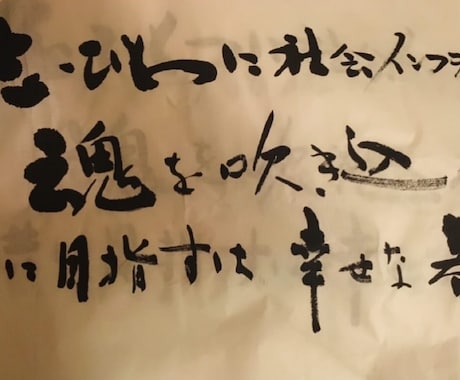 に社会インフラ
魂を吹き込
に目指すは幸せな